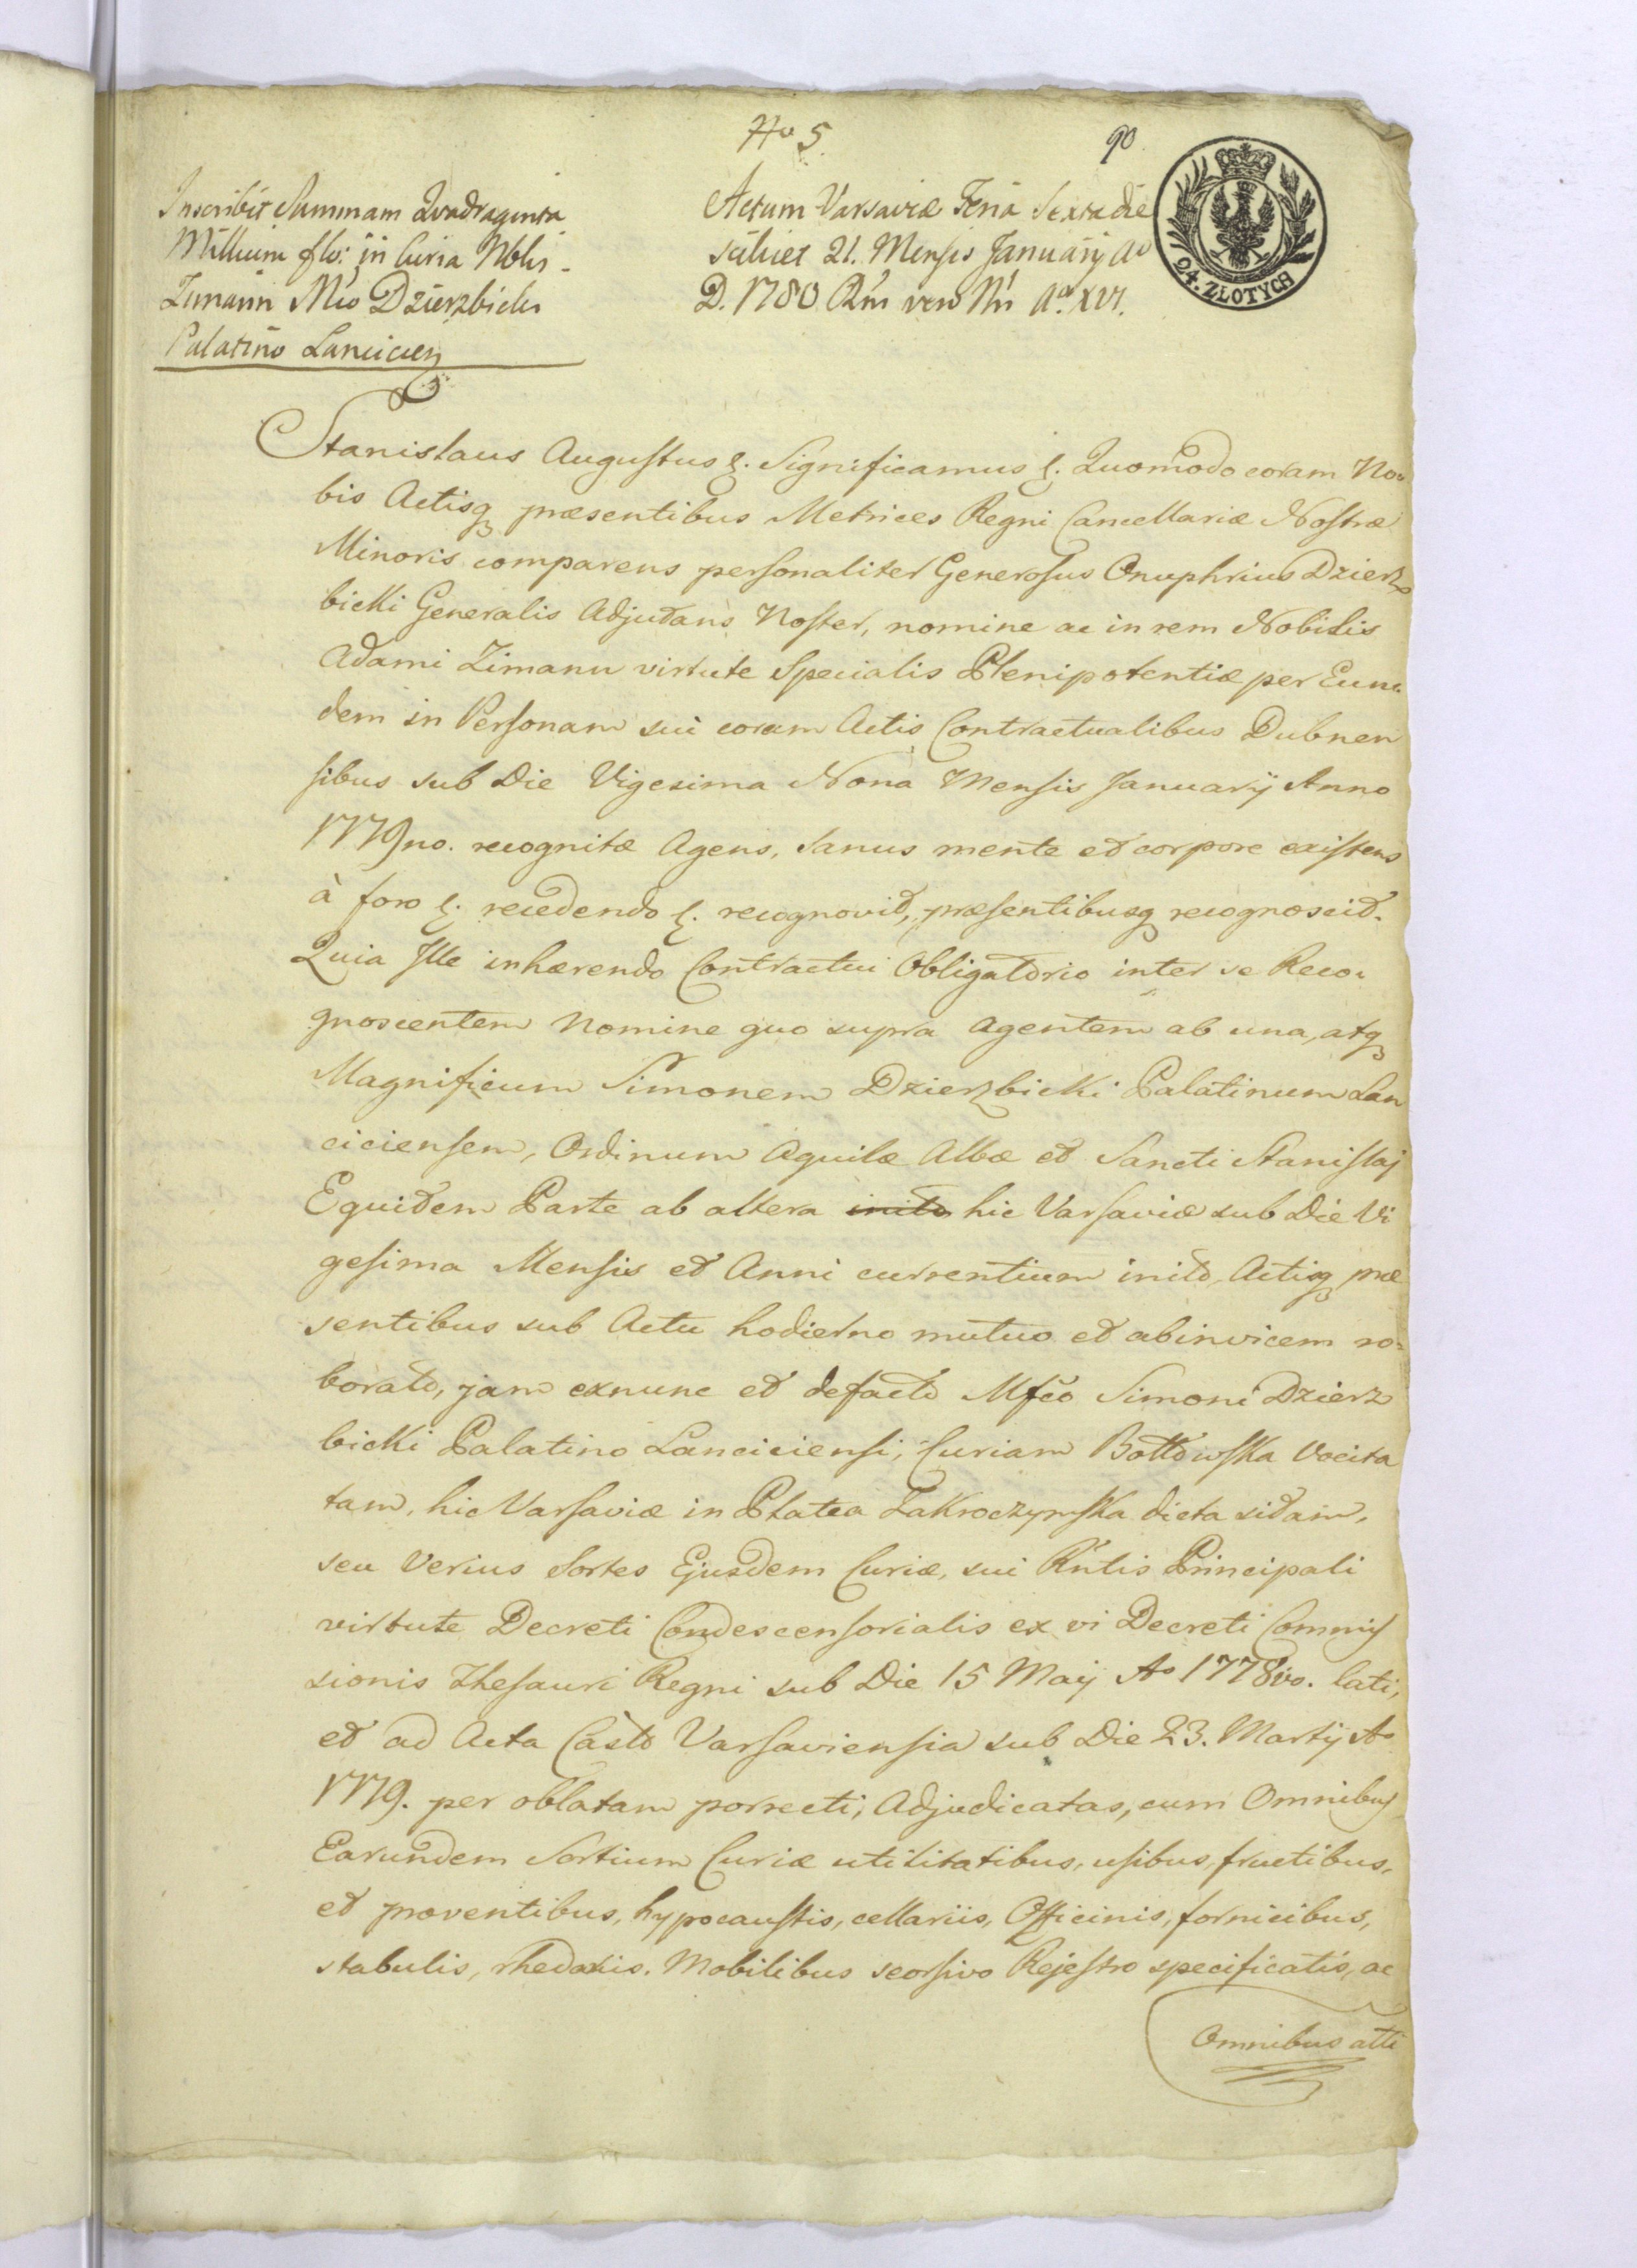 No 5
90
24. ZŁOTYCH
Inscribit Summam Quadraginta
Millium flo: in Curia Nblis
Zimann Mco Dzierzbicki
Palatino Lancicien
Actum Varsaviæ Feria Sexta die
scilicet 21. Mensis Januarij Ao
D. 1780 Rni vero Nri Ao. XVI.
Stanislaus Augustus &. Significamus &. Quomodo coram No-
bis Actisq præsentibus Metrices Regni Cancellariæ Nostræ
Minoris comparens personaliter Generosus Onuphrius Dzierz
bicki Generalis Adjutans Noster, nomine ac in rem Nobilis
Adami Zimann virtute Specialis Plenipotentiæ per Eun-
dem in Personam sui coram Actis Contractualibus Dubnen
sibus sub Die Vigesima Nona Mensis Januarij Anno
1779no. recognitæ Agens, Sanus mente et corpore existens
à foro &. recedendo &. recognovit, præsentibusq recognoscit.
Quia Ille inhærendo Contractui Obligatorio inter se Reco-
gnoscentem Nomine quo supra Agentem ab una, atq
Magnificum Simonem Dzierzbicki Palatinum Lan
ciciensem, Ordinum Aquilæ Albæ et Sancti Stanislaj
Equitem Parte ab altera inito hic Varsaviæ sub Die Vi
gesima Mensis et Anni currentium inito, Actisq præ
sentibus sub Actu hodierno mutuo et abinvicem ro-
borato, jam exnunc et defacto Mfco Simoni Dzierz
bicki Palatino Lanciciensi, Curiam Bottowska Vocita
tam, hic Varsaviæ in Platea Zakroczymska dicta sitam,
seu Verius Sortes Ejusdem Curiæ, sui Rntis Principali
virtute Decreti Condescensorialis ex vi Decreti Commis
sionis Thesauri Regni sub Die 15 Maij Ao 1778vo. lati,
et ad Acta Castr Varsaviensia sub Die 23. Martij Ao
1779. per oblatam porrecti, Adjudicatas, cum Omnibus
Earundem Sortium Curiæ utilitatibus, usibus, fructibus,
et proventibus, hypocaustis, cellariis, Officinis, fornicibus,
stabulis, rhedariis. Mobilibus seorsivo Rejestro specificatis, ac
Omnibus atti